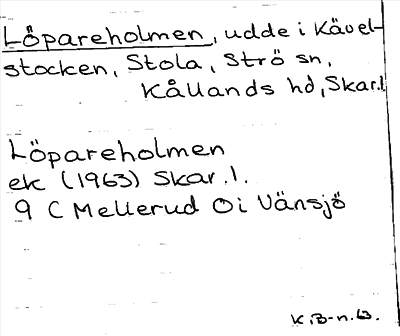 Löpareholmen, udde i Kävel-
stocken, Stola, Strö sn,
Kållands hd, Skar.l
Löpareholmen
ek (1963) Skar. l.
9 C Mellerud Oi Vänsjö
K.B-n. 63.